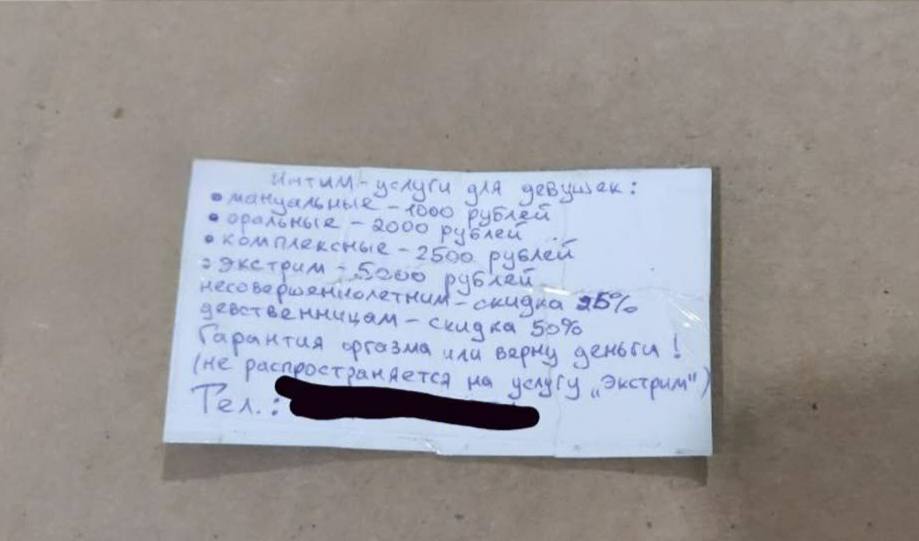 Интим-услуги для девушек:
• мануальные - 1000 рублей
• оральные - 2000 рублей
• комплексные - 2500 рублей
• экстрим - 5000 рублей
несовершеннолетним - скидка 25%
девственницам - скидка 50%
Гарантия оргазма или верну деньги!
(не распространяется на услугу „Экстрим")
Тел.: